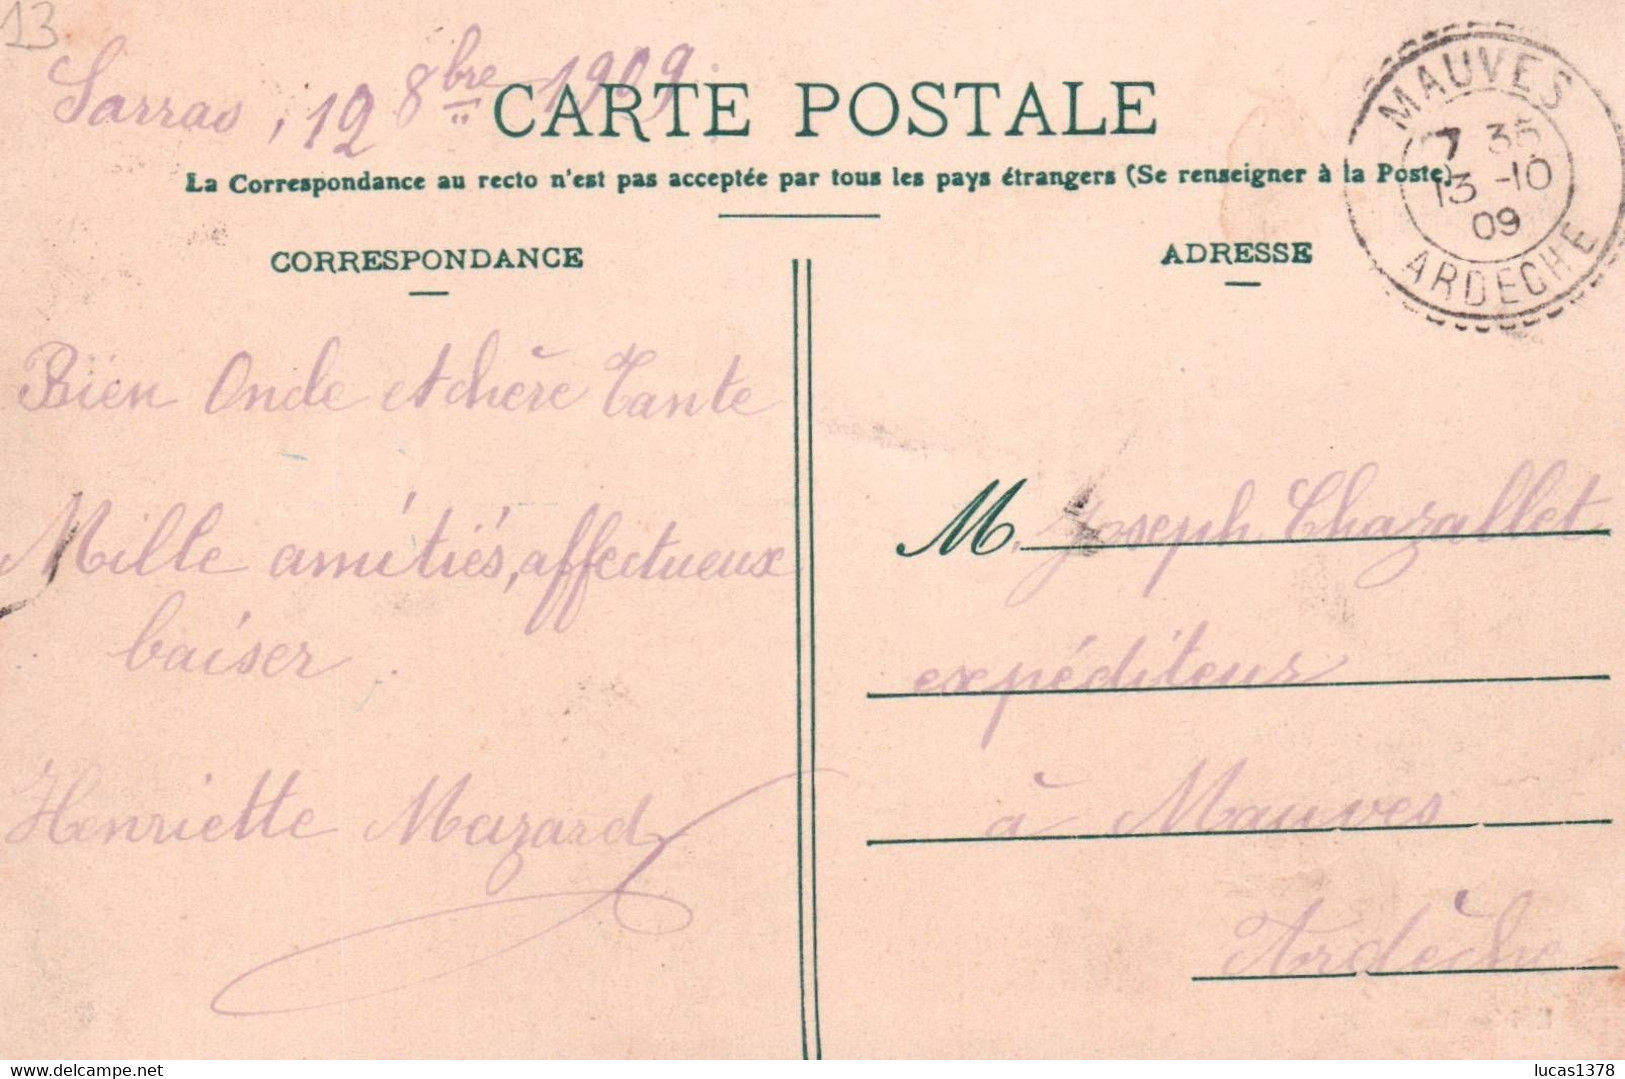 13
Sarras, 12 8bre 1909.
CARTE POSTALE
La Correspondance au recto n'est pas acceptée par tous les pays étrangers (Se renseigner à la Poste)
MAUVES
7 35
13 -10
09
ARDECHE
CORRESPONDANCE
ADRESSE
Bien Oncle et chère Tante
Mille amitiés, affectueux
baiser
Henriette Mazard
M. Joseph Chazallet
expéditeur
à Mauves
Ardèche
delcampe.net
lucas1378